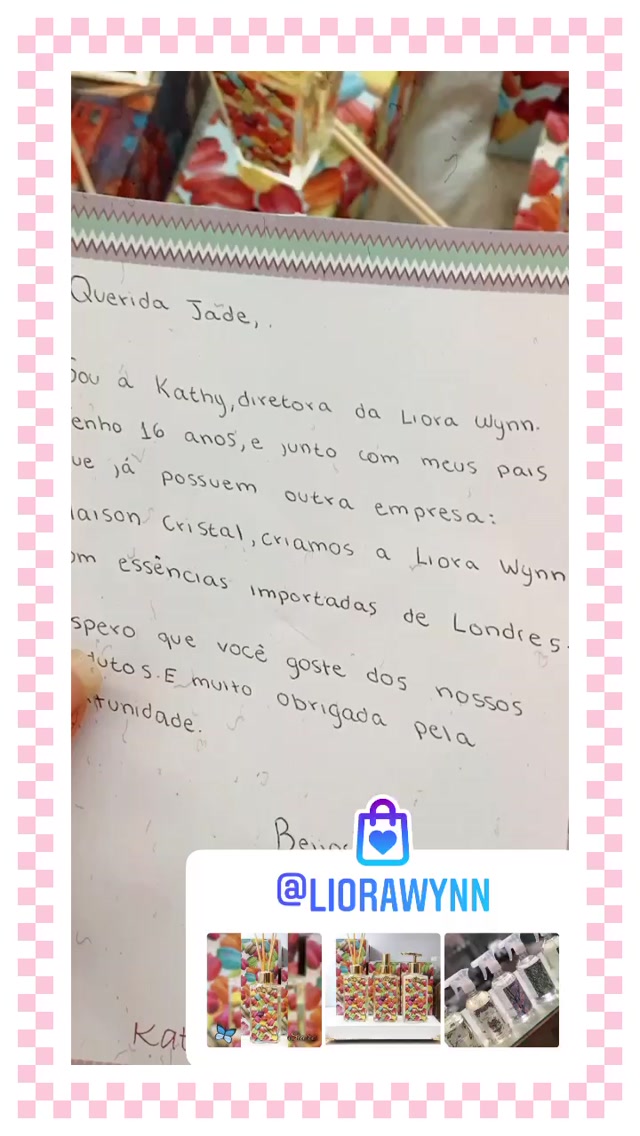 Querida Jade,.
Sou a Kathy, diretora da Liora Wynn.
enho 16 anos, e junto com meus pais
ue já possuem outra empresa:
aison Cristal, criamos a Liora Wynn
om essências importadas de Londres.
spero que você goste dos nossos
utos. E muito obrigada pela
tunidade.
@LIORAWYNN
Kat